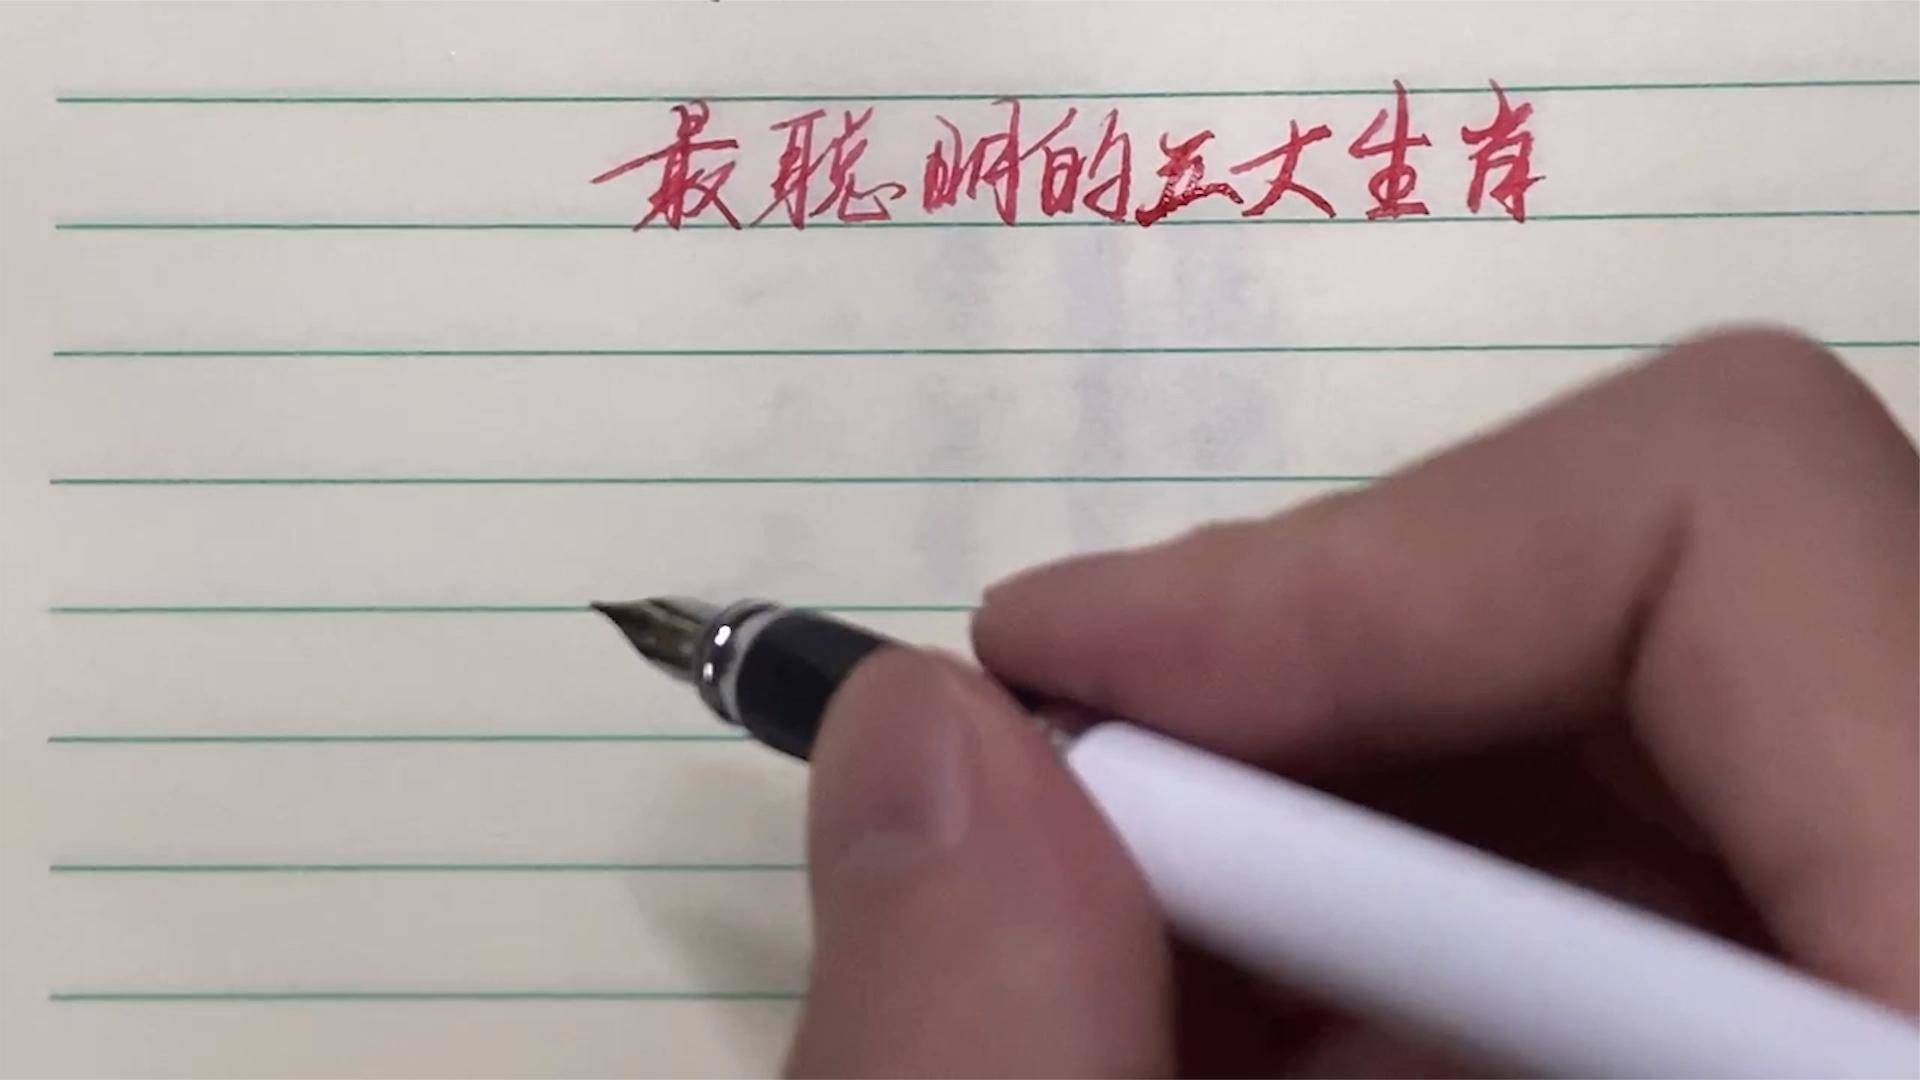 最聪明的五大生肖